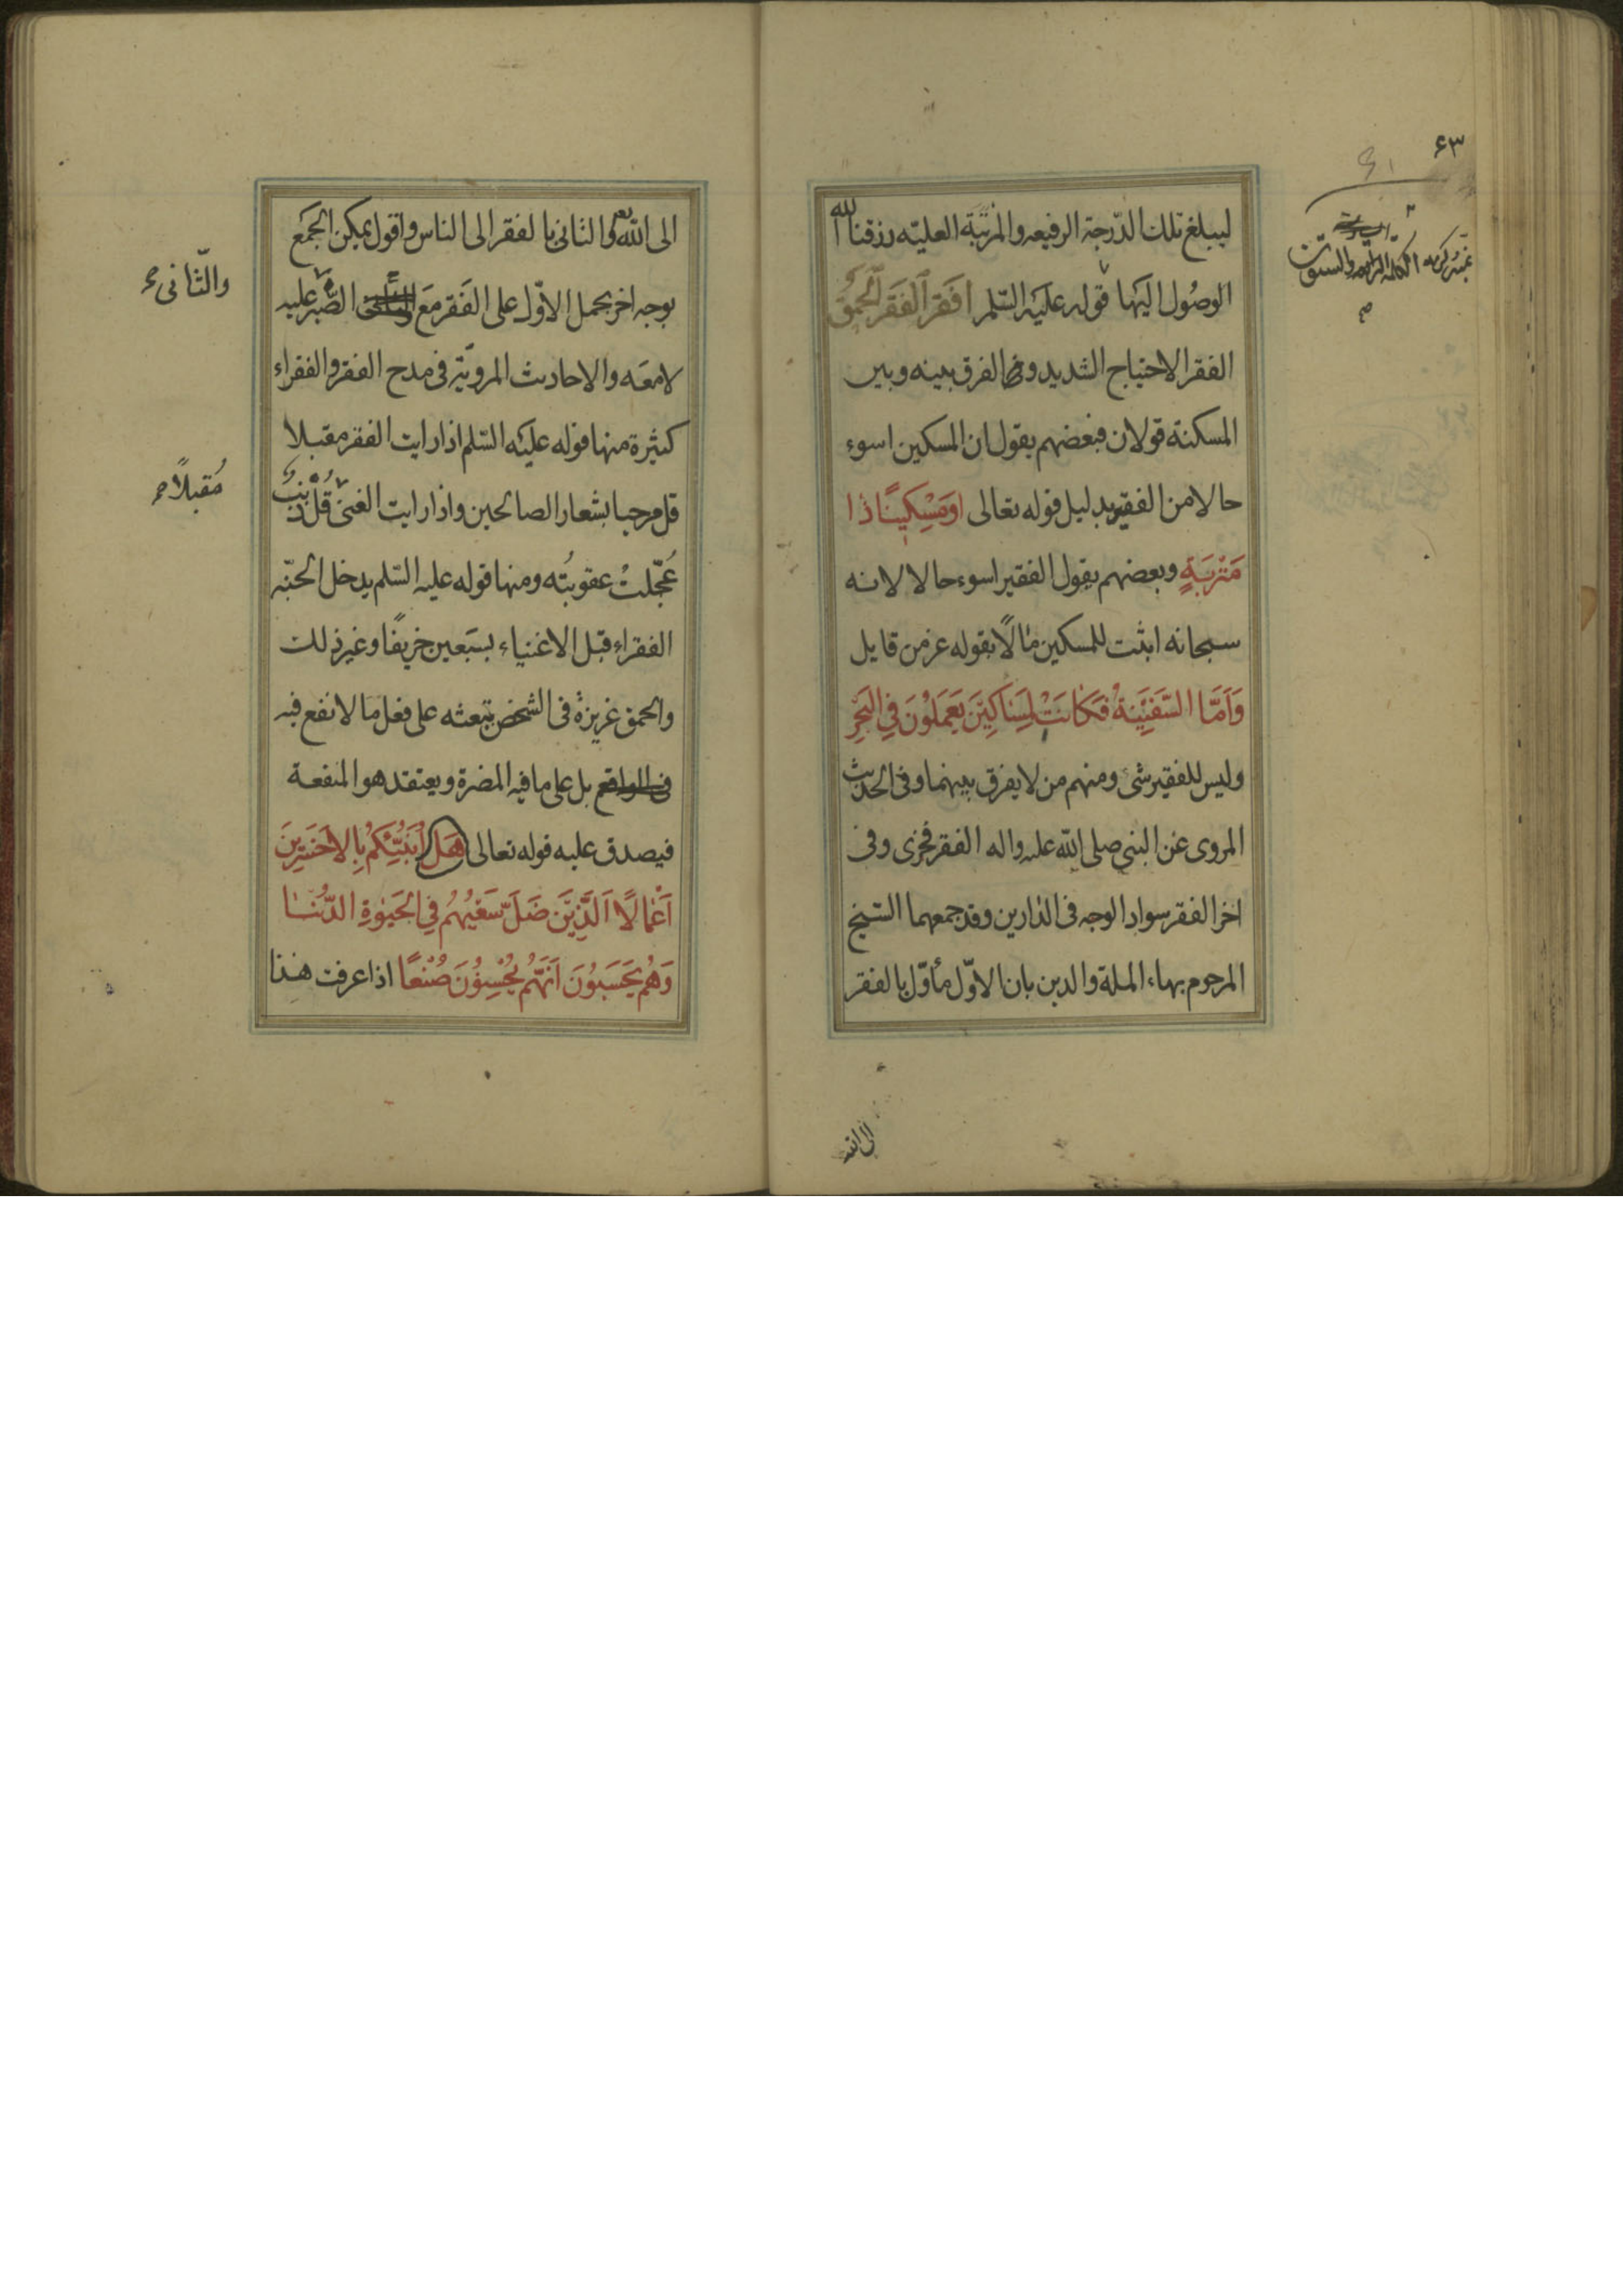 ٤٣
ليبلغ تلك الدّرجة الرفيعه والمرتبَة العليّه رزقنا الله
الوصُول اليَها قوله عليَه السّلم افقَر ٱلفَقَر ٱلحُمقُ
الفقر الاحتياج الشديد وفى الفرق بينه وبين
المسكنة قولان فبعضهم يقول ان المسكين اسوء
حالا من الفقير بدليل قوله تعالى اوَمِسْكينًا ذا
مَتْرَبَةٍ وبعضهم يقول الفقير اسوء حالا لانه
سبحانه اثبت للمسكين مالًا بقوله عز من قايل
وَاَمَّا السَّفينَةُ فكانَتْ لِمَسٰاكينَ يَعمَلوُنَ فِي البَحْرِ
وليس للفقير شئ ومنهم من لا يفرق بينهما وفى الحديث
المروى عن النبى صلى الله عليه واله الفقر فخرى وفى
اخر الفقر سواد الوجه فى الدارين وقد جمعهما الشيخ
المرحوم بهاء الملة والدين بان الاوّل مأوّل بالفقر
الى الله
الى الله تع والثانى بالفقر الى الناس واقول يمكن الجَمع
بوجه اخر يحمل الاوّل على الفَقر مَع الصّبر عليه
والثّانى
لا معَه والاحاديث المرويّة فى مدح الفقر والفقراء
كثيرة منها قوله عليَه السّلم اذا رايت الفقر مقبلا
قل مرحبا بشعار الصالحين واذا رايت الغنى قُل ذَنبٌ
مُقبلًا
عُجّلتْ عقوبتُه ومنها قوله عليه السّلم يدخل الجنّه
الفقراء قبل الاغنياء بسَبعين خريفًا وغير ذلك
والحمق غريزة فى الشخص تبعثه على فعل ما لا نفع فيه
فى الواقع بل على ما فيه المضرة ويعتقد هو المنفعة
فيصدق عليه قوله تعالى هَل اُنَبّئكُمُ بِالاَخْسَرينَ
اَعْمالًا اَلَّذينَ ضَلَّ سَعْيُهُم فِي الحَيوٰةِ الدُّنيٰا
وَهُم يَحْسَبُونَ اَنَّهُم يُحْسِنوُنَ صُنْعًا اذا عرفت هذا